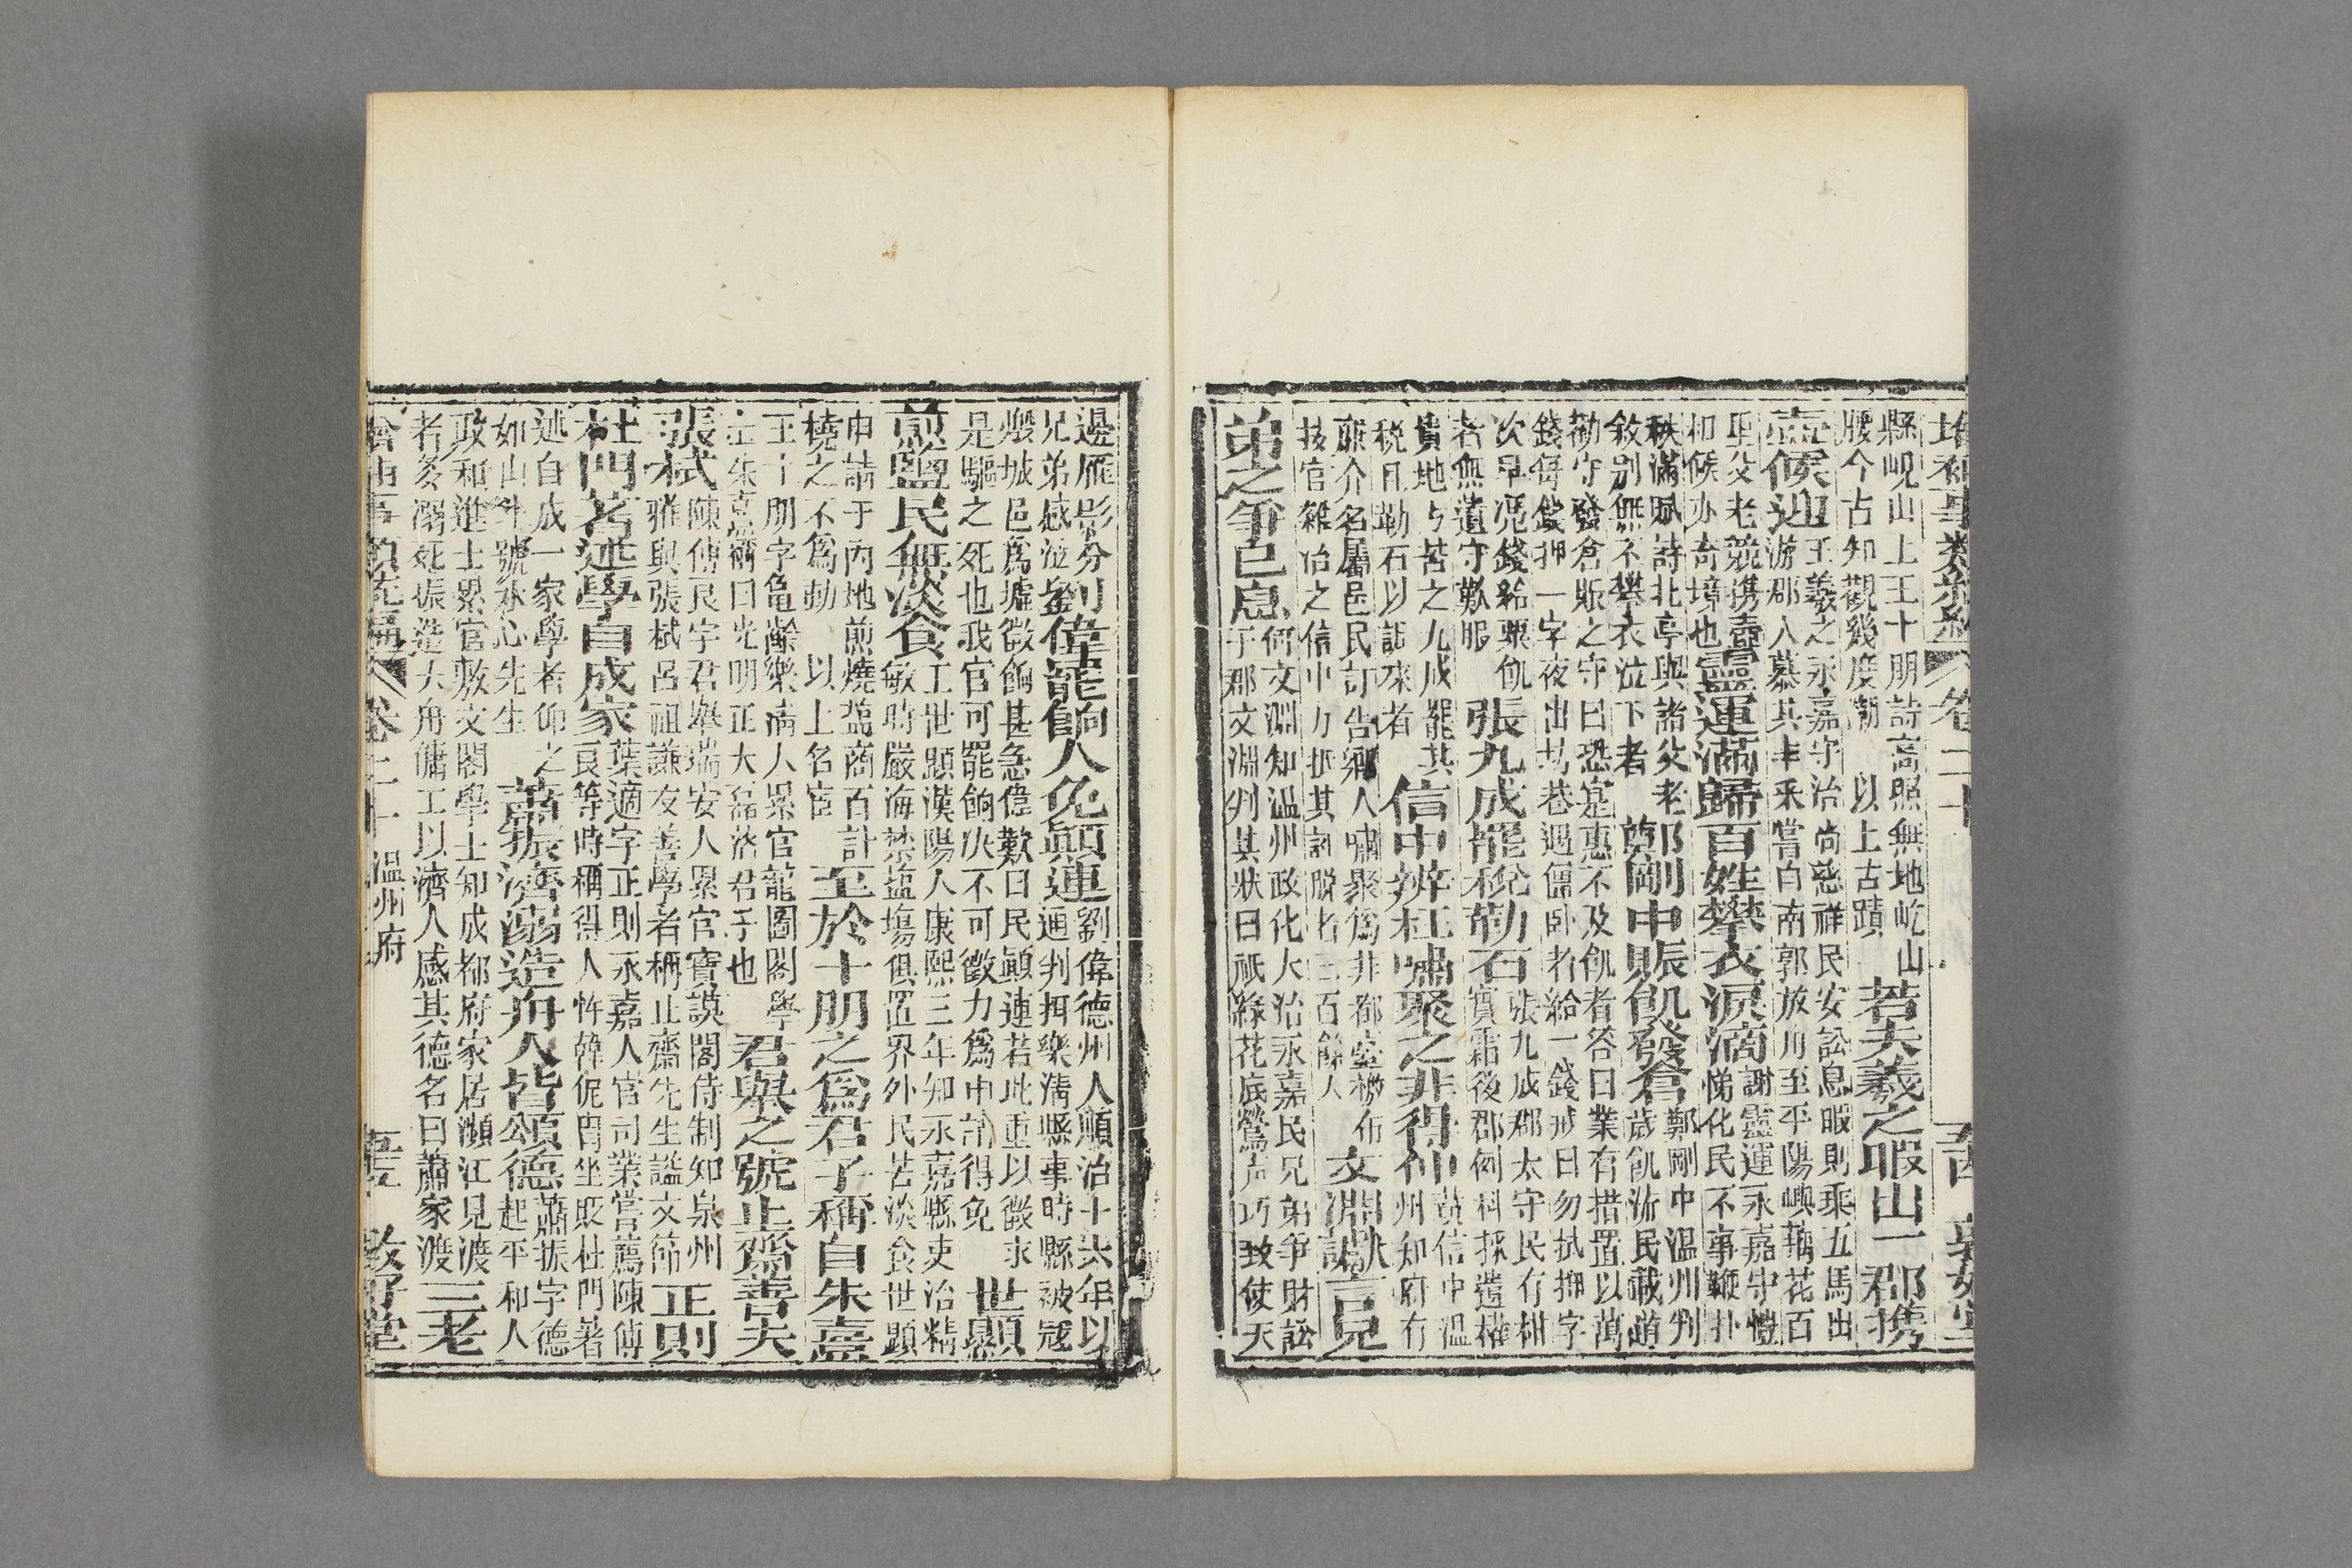 縣峴山上王十朋詩高照無地屹山
腰今古知觀幾度潮 以上古蹟 若夫羲之暇山一郡携
壺候迎 王羲之永嘉守治尚慈祥民安訟息暇則乘五馬出
游郡人慕其丰采嘗自南郭放舟至平陽嶼藕花百
里父老競携壺
和候亦奇境也 靈運滿歸百姓攀衣淚滴 謝靈運永嘉守愷
悌化民不事鞭扑
秩滿賦詩北亭與諸父老
敘別無不攀衣泣下者 鄭剛中賑飢發倉 鄭剛中温州判
歲飢流民載道
勸守發倉賑之守曰恐寔惠不及飢者答曰業有措置以萬
錢每錢押一字夜出坊巷遇僵卧者給一錢戒曰勿拭押字
次早凴錢給粟飢
者無遺守歎服 張九成罷稅勒石 張九成郡太守民有柑
實霜後郡例科採造權
貴地方苦之九成罷其
稅且勒石以詔來者 信中辨枉嘯聚之非得仲 黃信中温
州知府有
嫌介名屬邑民訂告鄉人嘯聚爲非都臺檄布
技官雜治之信中力抵其詞脫者三百餘人 文淵獄讞言兄
弟之爭已息 何文淵知温州政化大治永嘉民兄弟爭財訟
于郡文淵判其狀曰祇緣花底鶯声巧致使天
邊雁影分
兄弟感泣 劉偉罷餉人免顛連 劉偉德州人順治十六年以
通判攝樂清縣事時縣被宼
燬城邑爲墟徵餉甚急偉歎曰民顛連若此重以徵求
是驅之死也我官可罷餉決不可徵力爲申請得免 世顯
煎鹽民無淡食 工世顯漢陽人康熙三年知永嘉縣吏治精
敏時嚴海禁盐塲俱置界外民苦淡食世顯
申請于内地煎燒盐商百計
橈之不爲動 以上名宦 至於十朋之爲君子稱自朱熹
王十朋字龜齡樂淸人累官龍圖閣學
士朱熹稱曰光明正大磊洛君子也 君舉之號止齋善夫
張栻 陳傅良字君舉瑞安人累官寶謨閣侍制知泉州
雅與張栻呂祖謙友善學者稱止齋先生謚文節 正則
杜門著述學自成家 葉適字正則永嘉人官司業嘗薦陳傅
良等時稱得人忤韓侂胄坐貶杜門著
述自成一家學者仰之
如山斗號水心先生 蕭振濟溺造舟人皆頌德 蕭振字德
起平和人
政和進士累官敷文閣學士知成都府家居瀕江見渡
者多溺死振造大舟傭工以濟人感其德名曰蕭家渡 三老
卷二十 温州府